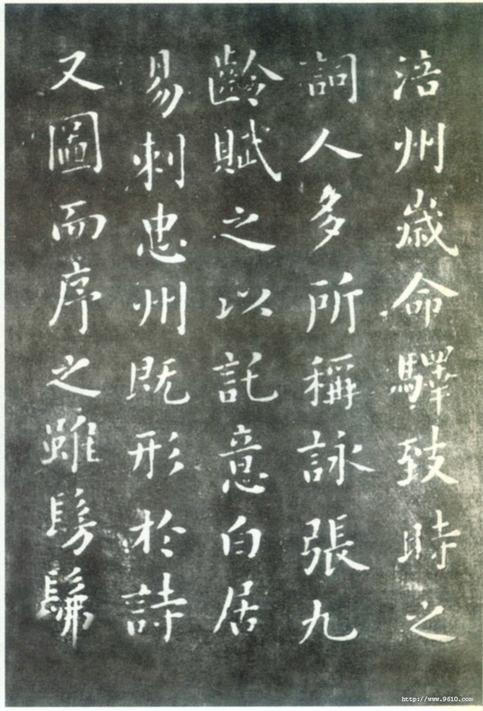 涪州歲命驛致時之
詞人多所稱詠張九
齡賦之以託意白居
易刺忠州既形於詩
又圖而序之雖髣髴
http://www.9610.com